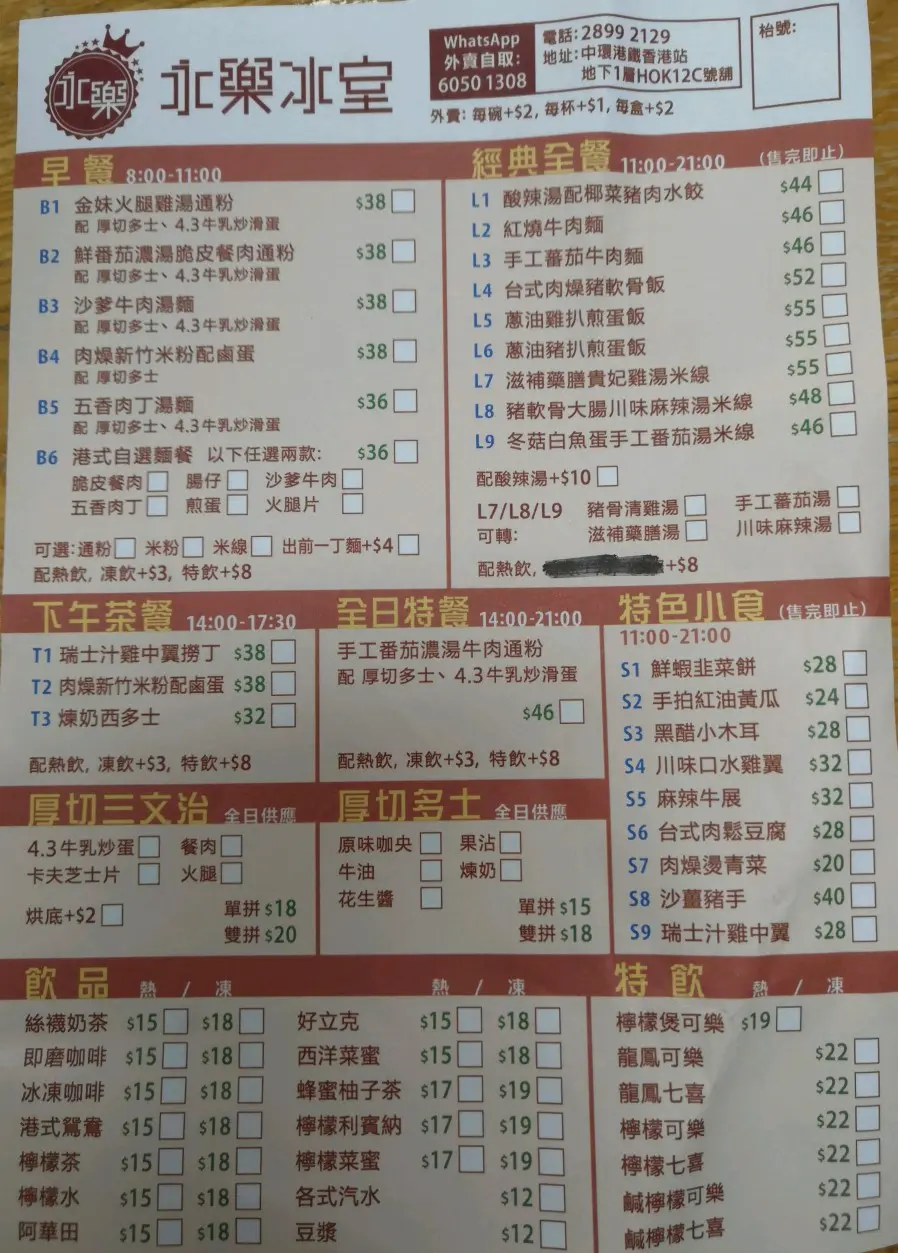 永樂
永樂冰室
WhatsApp
外賣自取:
6050 1308
電話: 2899 2129
地址: 中環港鐵香港站
地下1層HOK12C號舖
枱號:
外賣: 每碗+$2, 每杯+$1, 每盒+$2
早餐 8:00-11:00
B1 金妹火腿雞湯通粉 $38
配 厚切多士、4.3牛乳炒滑蛋
B2 鮮番茄濃湯脆皮餐肉通粉 $38
配 厚切多士、4.3牛乳炒滑蛋
B3 沙爹牛肉湯麵 $38
配 厚切多士、4.3牛乳炒滑蛋
B4 肉燥新竹米粉配鹵蛋 $38
配 厚切多士
B5 五香肉丁湯麵 $36
配 厚切多士、4.3牛乳炒滑蛋
B6 港式自選麵餐 以下任選兩款: $36
脆皮餐肉 腸仔 沙爹牛肉
五香肉丁 煎蛋 火腿片
可選:通粉 米粉 米線 出前一丁麵+$4
配熱飲, 凍飲+$3, 特飲+$8
經典全餐 11:00-21:00 (售完即止)
L1 酸辣湯配椰菜豬肉水餃 $44
L2 紅燒牛肉麵 $46
L3 手工蕃茄牛肉麵 $46
L4 台式肉燥豬軟骨飯 $52
L5 蔥油雞扒煎蛋飯 $55
L6 蔥油豬扒煎蛋飯 $55
L7 滋補藥膳貴妃雞湯米線 $55
L8 豬軟骨大腸川味麻辣湯米線 $48
L9 冬菇白魚蛋手工番茄湯米線 $46
配酸辣湯+$10
L7/L8/L9 豬骨清雞湯 手工蕃茄湯
可轉: 滋補藥膳湯 川味麻辣湯
配熱飲, +$8
下午茶餐 14:00-17:30
T1 瑞士汁雞中翼撈丁 $38
T2 肉燥新竹米粉配鹵蛋 $38
T3 煉奶西多士 $32
配熱飲, 凍飲+$3, 特飲+$8
全日特餐 14:00-21:00
手工番茄濃湯牛肉通粉
配 厚切多士、4.3牛乳炒滑蛋
$46
配熱飲, 凍飲+$3, 特飲+$8
特色小食 (售完即止)
11:00-21:00
S1 鮮蝦韭菜餅 $28
S2 手拍紅油黃瓜 $24
S3 黑醋小木耳 $28
S4 川味口水雞翼 $32
S5 麻辣牛展 $32
S6 台式肉鬆豆腐 $28
S7 肉燥燙青菜 $20
S8 沙薑豬手 $40
S9 瑞士汁雞中翼 $28
厚切三文治 全日供應
4.3牛乳炒蛋 餐肉
卡夫芝士片 火腿
烘底+$2 單拼 $18
雙拼 $20
厚切多士 全日供應
原味咖央 果沾
牛油 煉奶
花生醬
單拼 $15
雙拼 $18
飲品 熱 / 凍 熱 / 凍
絲襪奶茶 $15 $18 好立克 $15 $18
即磨咖啡 $15 $18 西洋菜蜜 $15 $18
冰凍咖啡 $15 $18 蜂蜜柚子茶 $17 $19
港式鴛鴦 $15 $18 檸檬利賓納 $17 $19
檸檬茶 $15 $18 檸檬菜蜜 $17 $19
檸檬水 $15 $18 各式汽水 $12
阿華田 $15 $18 豆漿 $12
特飲 熱 / 凍
檸檬煲可樂 $19
龍鳳可樂 $22
龍鳳七喜 $22
檸檬可樂 $22
檸檬七喜 $22
鹹檸檬可樂 $22
鹹檸檬七喜 $22